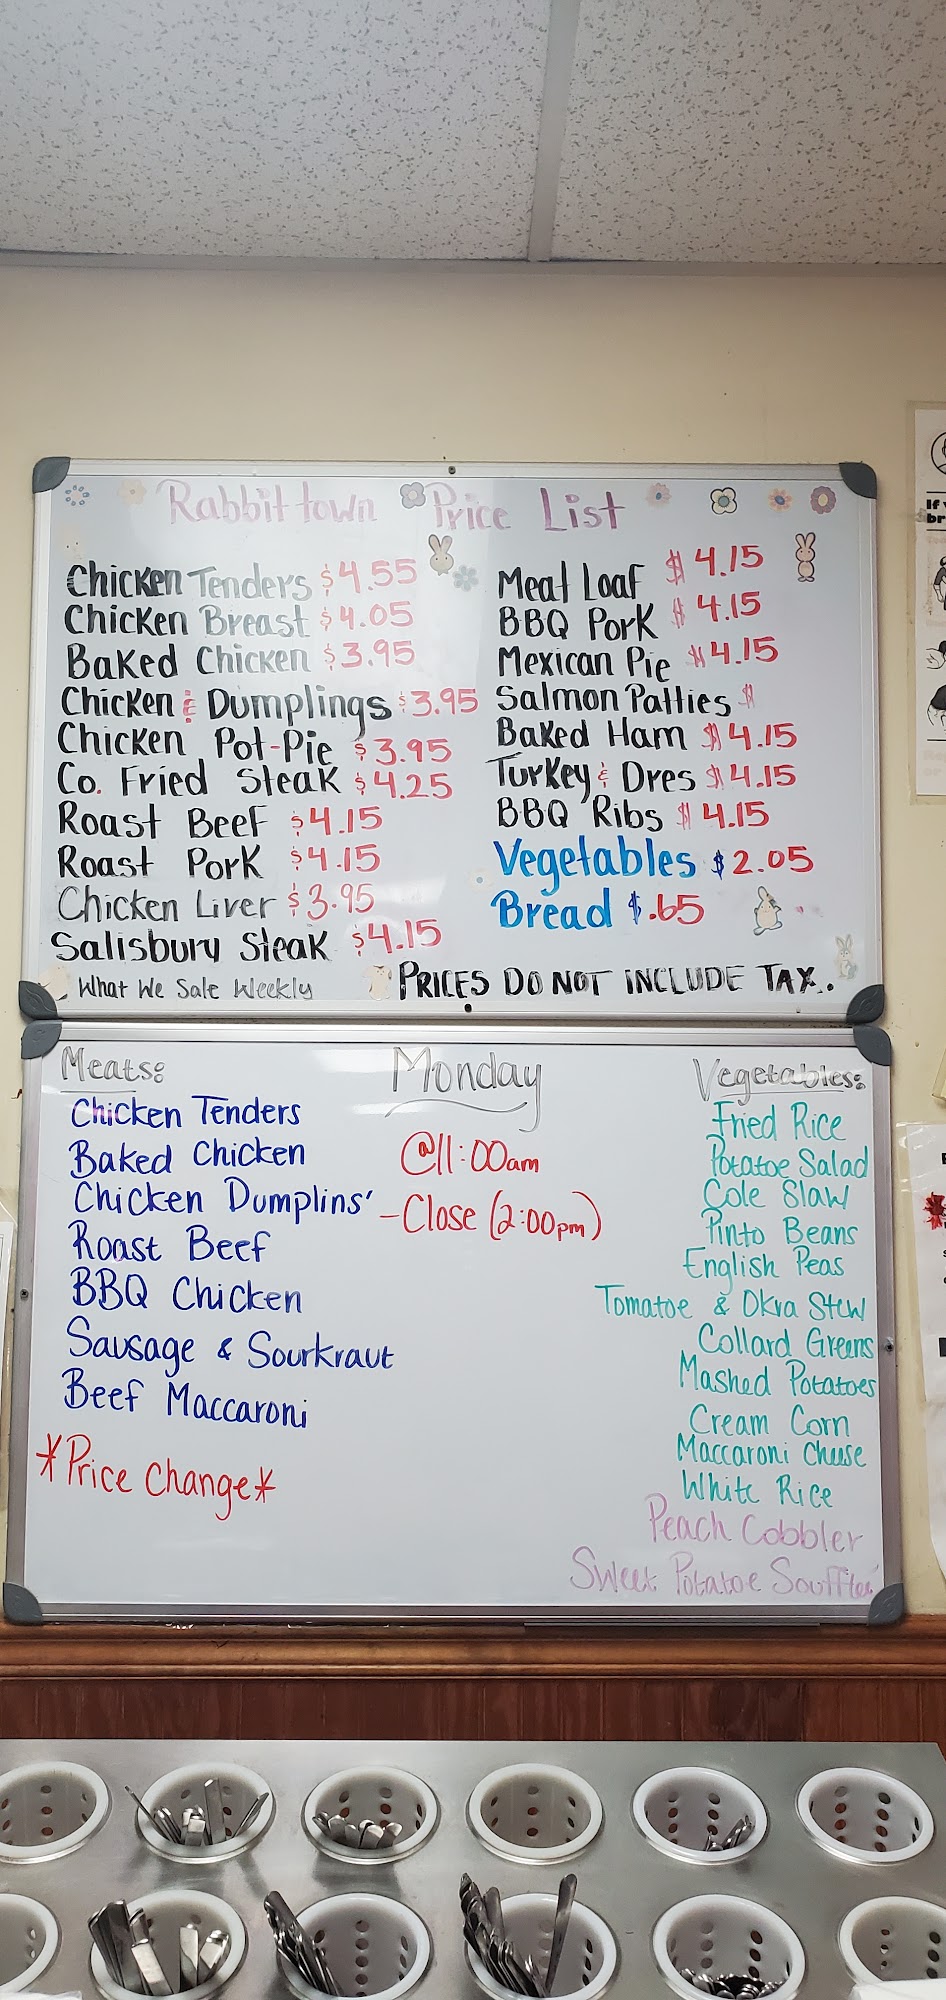 Rabbittown Price List
Chicken Tenders $4.55
Chicken Breast $4.05
Baked Chicken $3.95
Chicken & Dumplings $3.95
Chicken Pot-Pie $3.95
Co. Fried Steak $4.25
Roast Beef $4.15
Roast Pork $4.15
Chicken Liver $3.95
Salisbury Steak $4.15
What We Sale Weekly
Meat Loaf $4.15
BBQ Pork $4.15
Mexican Pie $4.15
Salmon Patties $
Baked Ham $4.15
Turkey & Dres $4.15
BBQ Ribs $4.15
Vegetables $2.05
Bread $.65
PRICES DO NOT INCLUDE TAX.
Meats:
Chicken Tenders
Baked Chicken
Chicken Dumplins'
Roast Beef
BBQ Chicken
Sausage & Sourkraut
Beef Maccaroni
*Price Change*
Monday
@11:00am
-Close (2:00pm)
Vegetables:
Fried Rice
Potatoe Salad
Cole Slaw
Pinto Beans
English Peas
Tomatoe & Okra Stew
Collard Greens
Mashed Potatoes
Cream Corn
Maccaroni Cheese
White Rice
Peach Cobbler
Sweet Potatoe